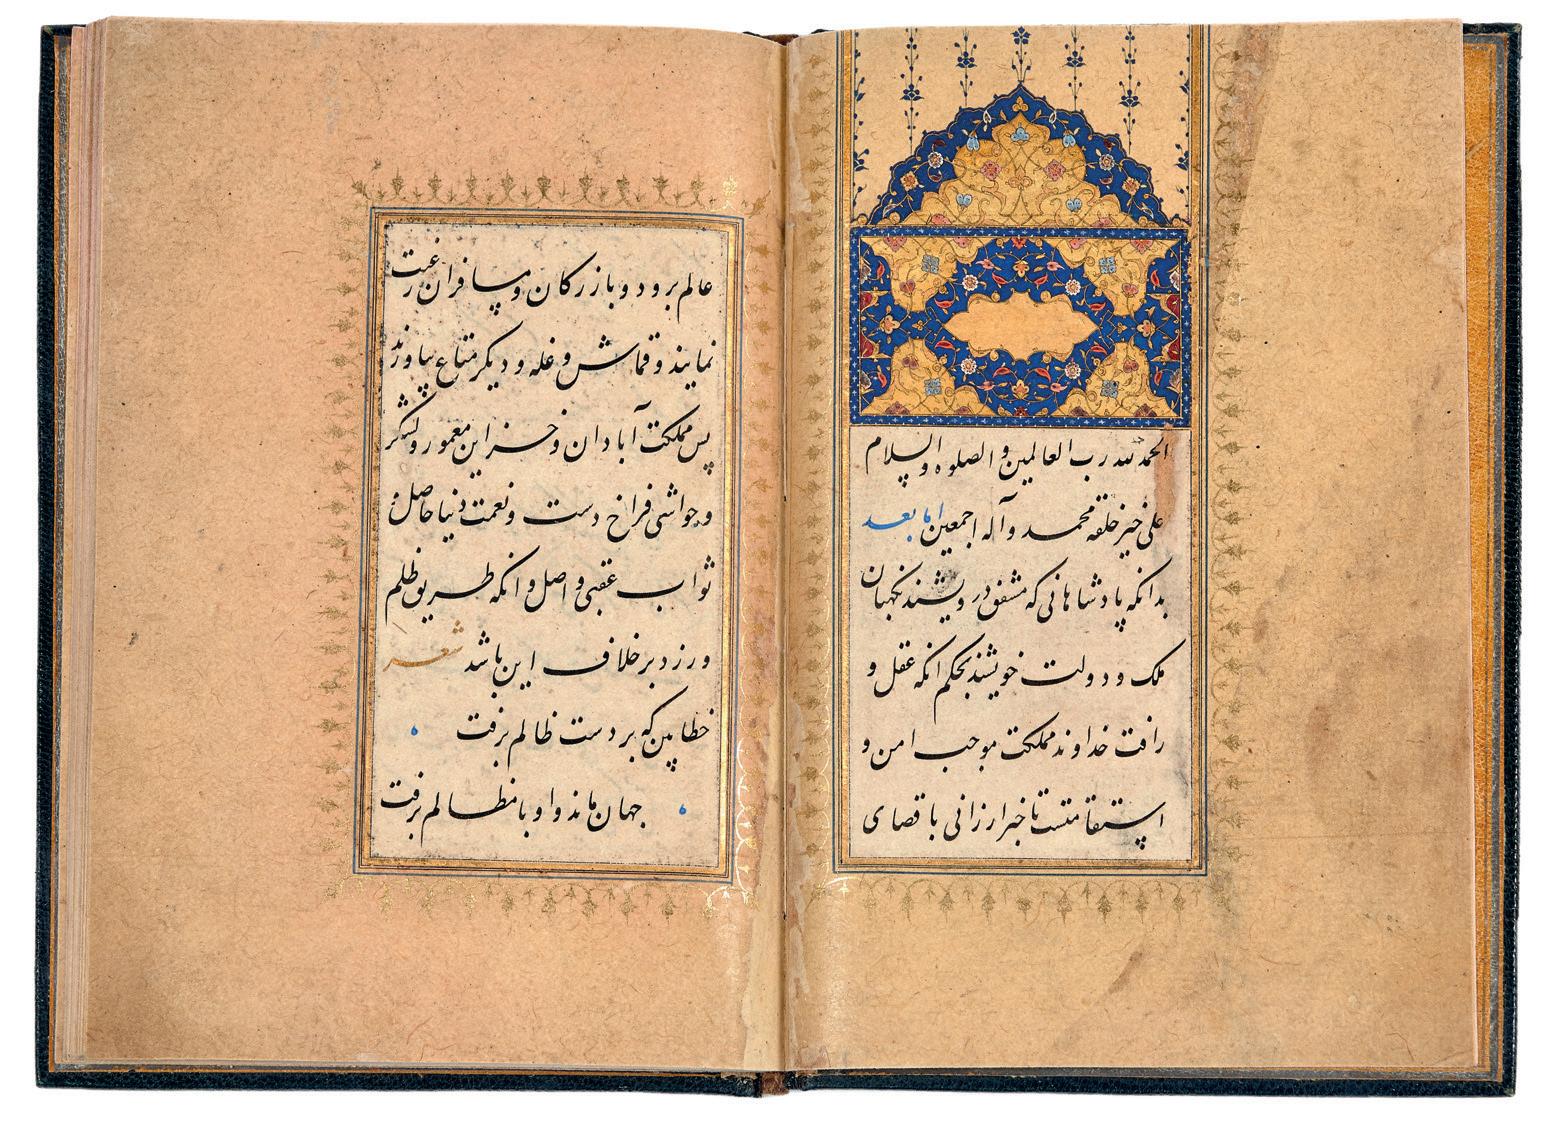 الحمد لله رب العالمین و الصلوه و السلام
علی خیر خلقه محمد و آله اجمعین اما بعد
بدانکه پادشاهانی که مشفق درویشند نکهبان
ملک و دولت خویشند بحکم آنکه عقل و
رافت خداوند مملکت موجب امن و
استقامتست تا خبر ارزانی باقصای
عالم برود و بازرکان و مسافران رغبت
نمایند و قماش و غله و دیکر متاع بیاورند
پس مملکت آبادان و خزاین معمور و لشکر
و حواشی فراخ دست و نعمت دنیا حاصل و
ثواب عقبی واصل و آنکه طریق ظلم
ورزد بر خلاف این باشد شعر
خطا بین که بر دست ظالم برفت
جهان ماند و او با مظالم برفت